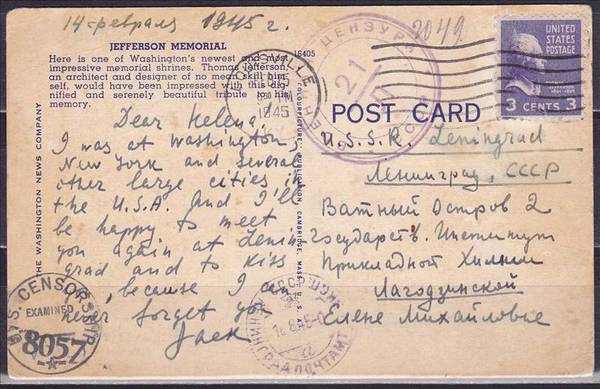 14 февраля 1945 г.
2049
JEFFERSON MEMORIAL
Here is one of Washington's newest and most
impressive memorial shrines. Thomas Jefferson,
an architect and designer of no mean skill him-
self, would have been impressed with this dig-
nified and serenely beautiful tribute to his
memory.
16405
THE WASHINGTON NEWS COMPANY
CAMBRIDGE, MASS., U.S.A.
UNITED
STATES
POSTAGE
3 CENTS 3
1945
ЦЕНЗУРА
21
POST CARD
Dear Helena,
I was at Washington,
New York and several
other large cities in
the U.S.A. and I'll
be happy to meet
you again at Lenin
grad and to kiss
you, because I can
never forget you
Jack
U.S.S.R. Leningrad
Ленинград, СССР
Ватный Остров 2
Государств. Институт
Прикладной Химии
Лагодзинской
Елене Михайловне
U.S. CENSORSHIP
EXAMINED
8057
СССР
ЛЕНИНГРАД ПОЧТАМТ